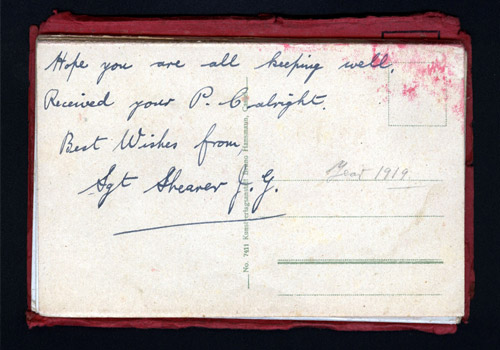 Hope you are all keeping well.
Received your P. C. alright.
Best Wishes from
Sgt Shearer J. G.
Year 1919
No. 7431